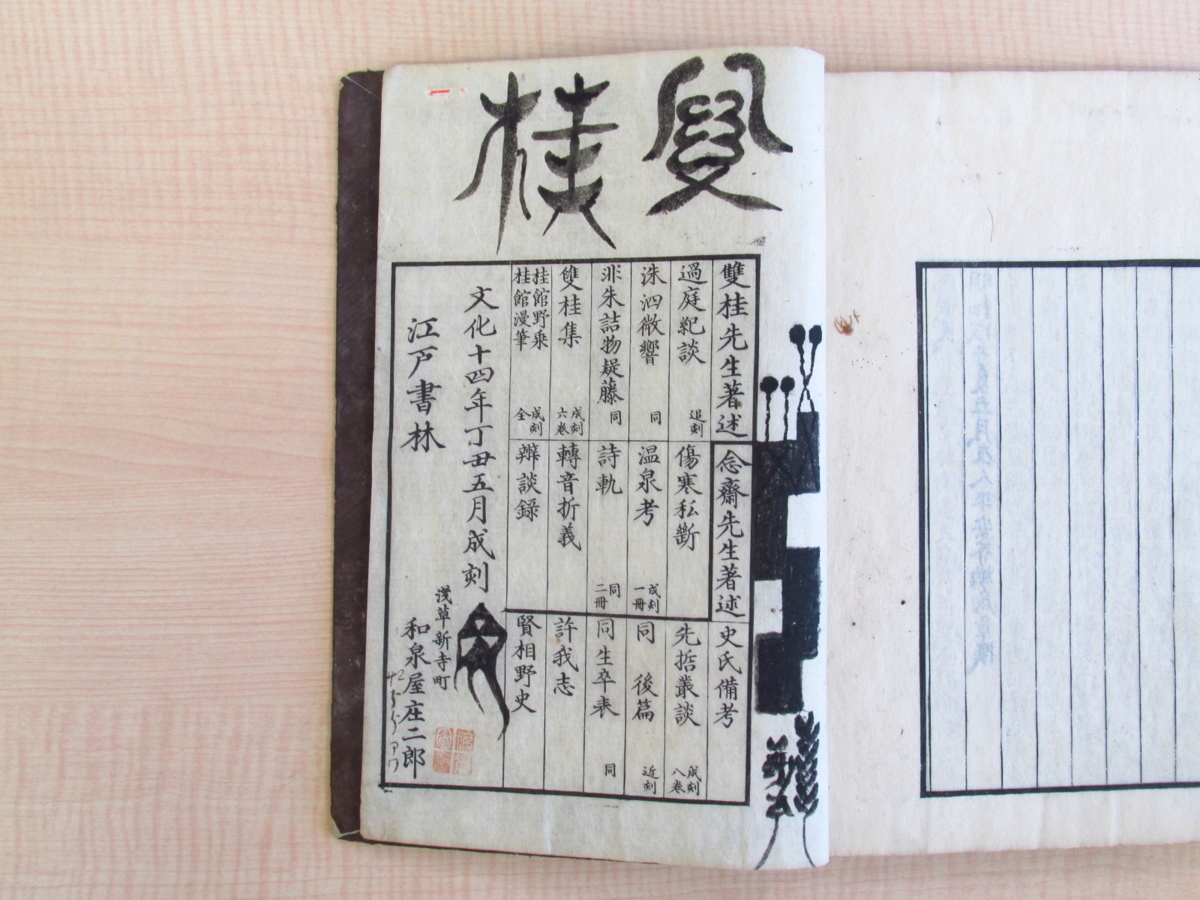 雙桂
雙桂先生著述
過庭紀談 追刻
洙泗微響 同
非朱詰物疑藤 同
雙桂集 成刻六卷
桂館野乘
桂館漫筆 成刻全
念齋先生著述
傷寒私斷
溫泉考 成刻一冊
詩軌 同二冊
轉音折義
辨談錄
史氏備考
先哲叢談 成刻八卷
同 後篇 近刻
同生卒表 同
許我志
賢相野史
文化十四年丁丑五月成刻
江戶書林
淺草新寺町
和泉屋庄二郎